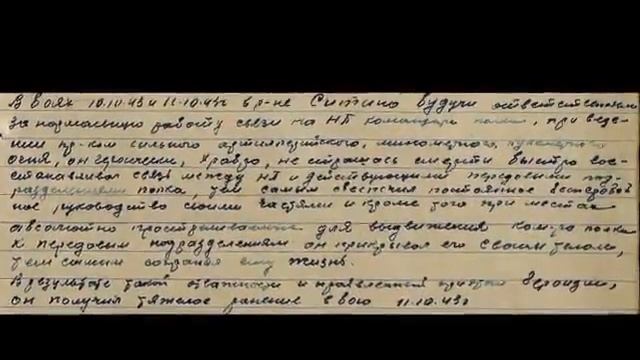 В боях 10.10.43 и 11.10.43г в р-не Ситино будучи ответственным
за нормальную работу связи на НП командира полка, при веде-
нии пр-ком сильного артиллерийского, минометного, пулеметного
огня, он героически, храбро, не страшась смерти быстро вос-
станавливал связь между НП и действующими передовыми под-
разделениями полка, тем самым обеспечил постоянное бесперебой
ное руководство своими частями и кроме того при местах
абсолютно простреливаемых для выдвижения ком-ра полка
к передовым подразделениям он прикрывал его своим телом,
тем самым сохраняя ему жизнь.
В результате такой отважности и проявленной при этом героизм,
он получил тяжелое ранение в бою 11.10.43г